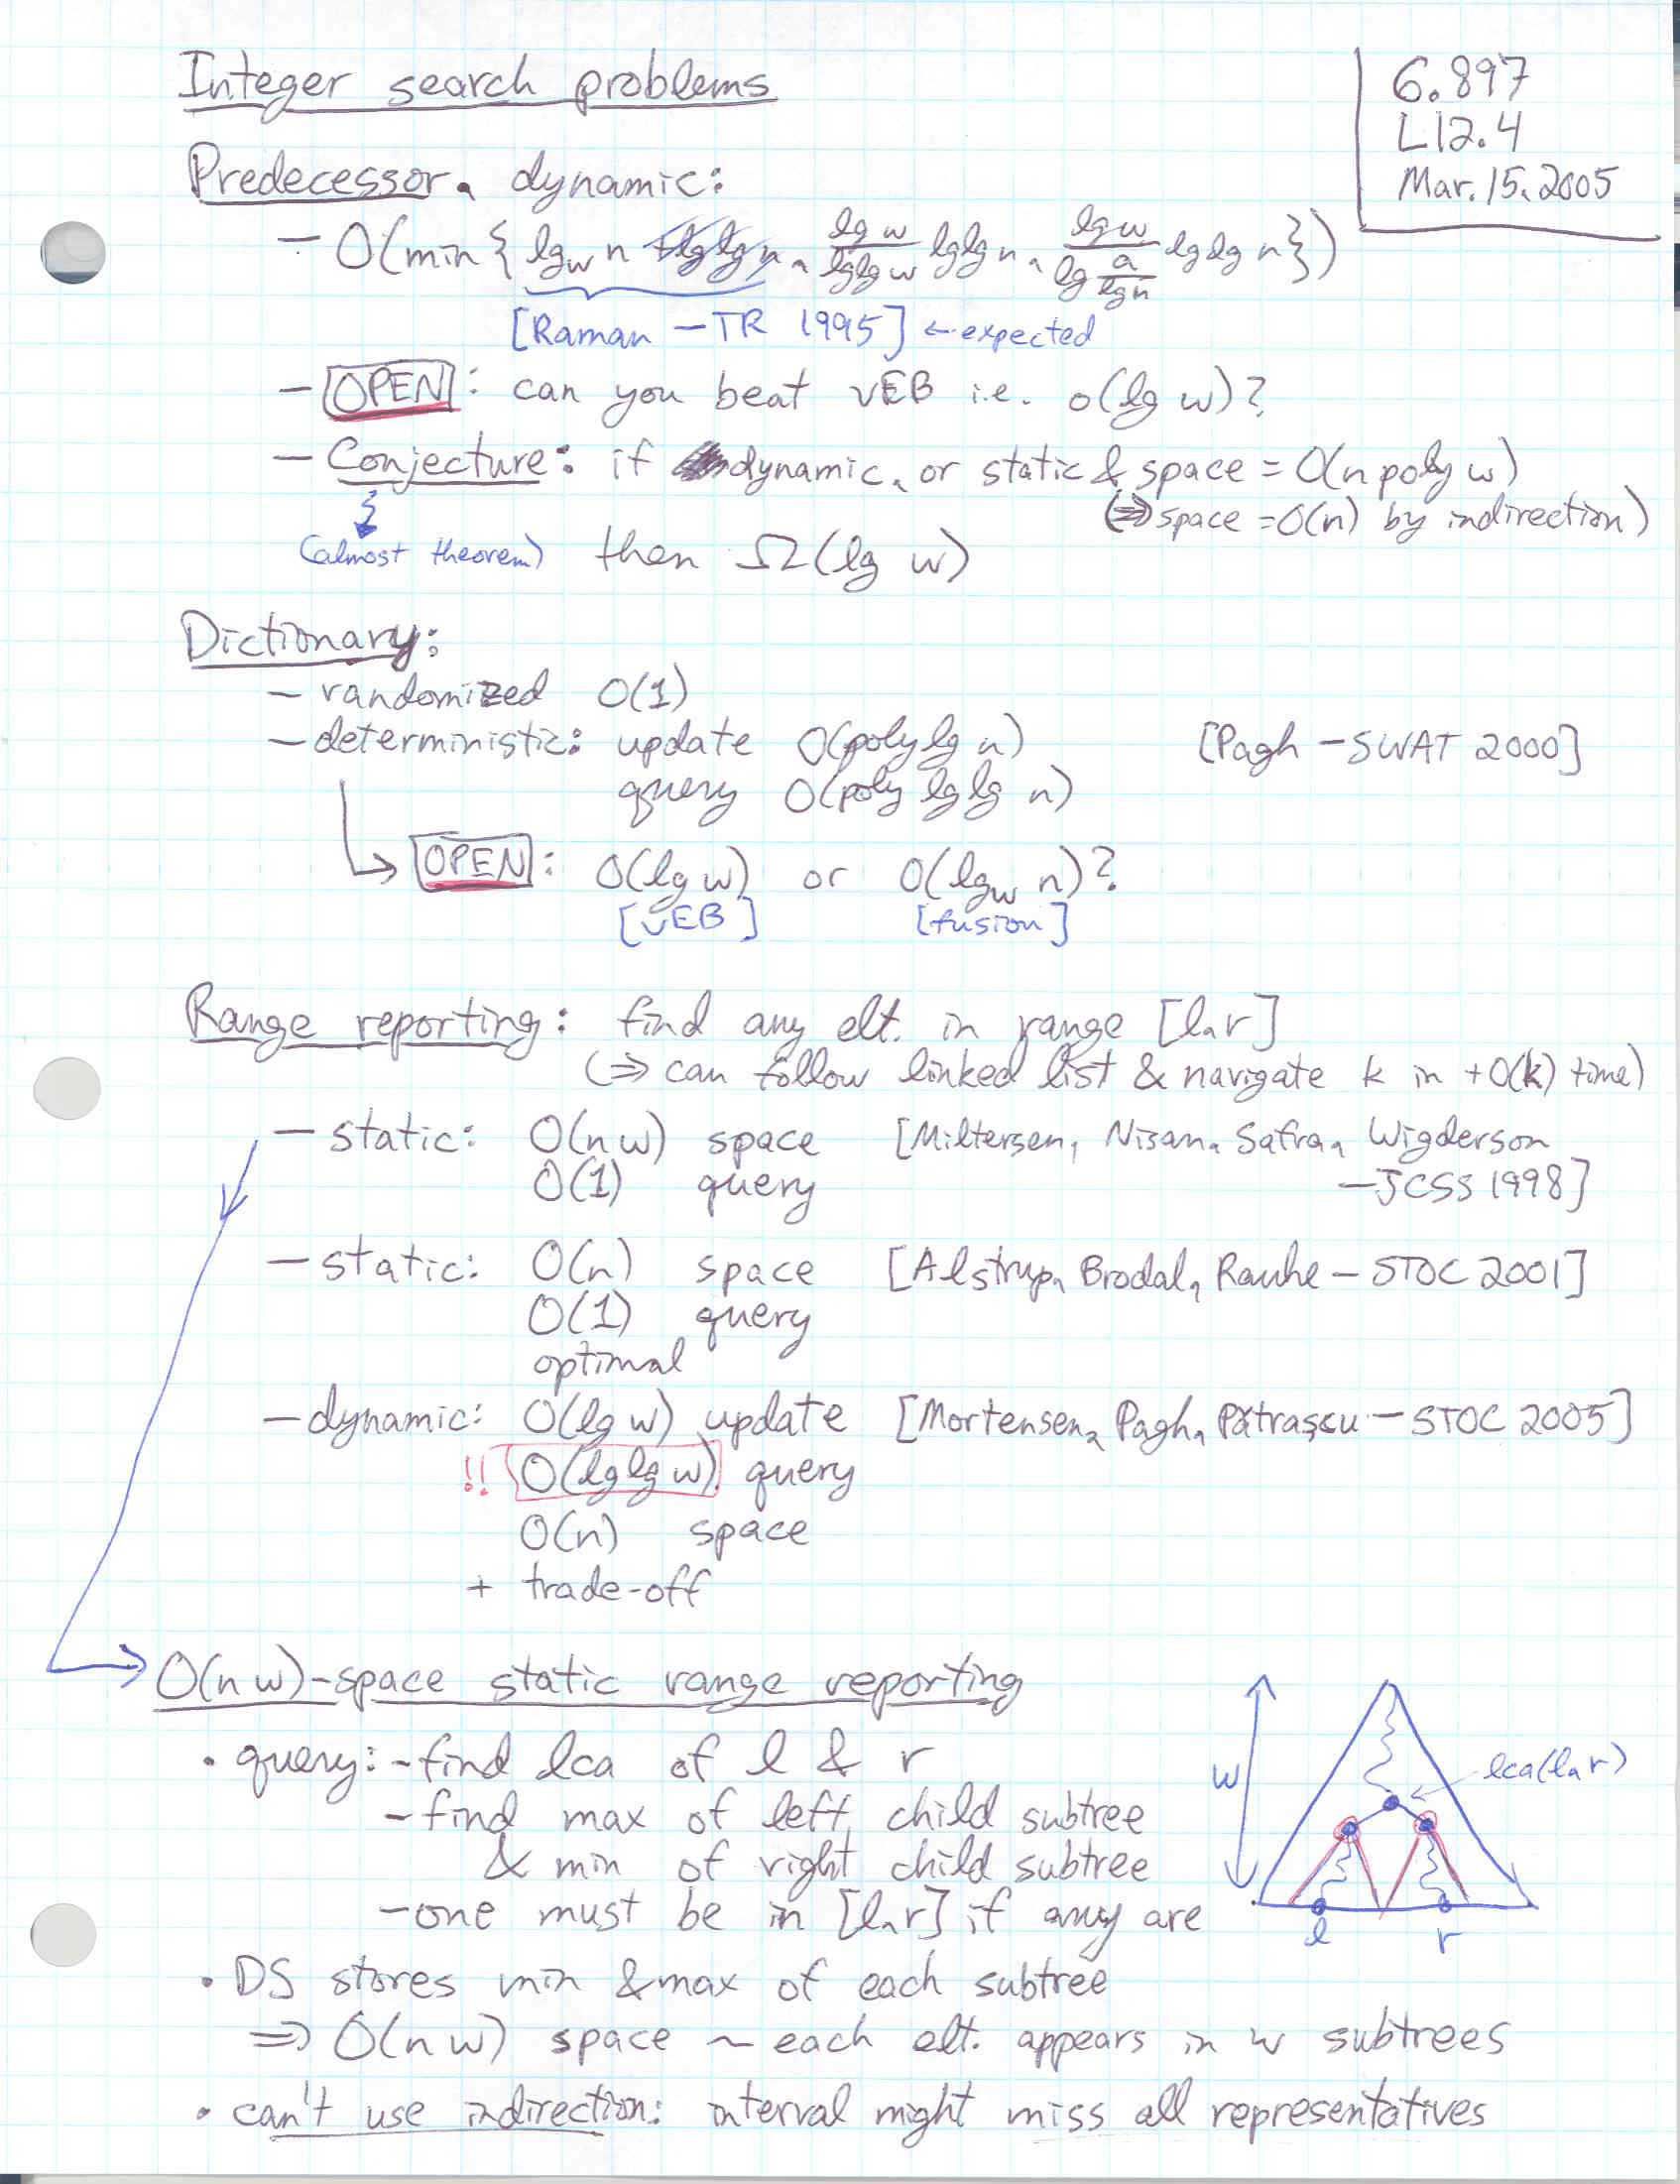 Integer search problems
6.897
L12.4
Mar. 15, 2005
Predecessor, dynamic:
- O(min{ lg_w n + lglg n, lg w / lglg w lglg n, lg w / lg (a / lg n) lglg n})
[Raman - TR 1995] ← expected
- OPEN: can you beat vEB i.e. o(lg w)?
- Conjecture: if dynamic, or static & space = O(n poly w)
(⇒ space = O(n) by indirection)
(almost theorem) then Ω(lg w)
Dictionary:
- randomized O(1)
- deterministic: update O(poly lg n) [Pagh - SWAT 2000]
query O(poly lglg n)
→ OPEN: O(lg w) or O(lg_w n)?
[vEB] [fusion]
Range reporting: find any elt. in range [l,r]
(⇒ can follow linked list & navigate k in +O(k) time)
- static: O(nw) space [Miltersen, Nisan, Safra, Wigderson
O(1) query - JCSS 1998]
- static: O(n) space [Alstrup, Brodal, Rauhe - STOC 2001]
O(1) query
optimal
- dynamic: O(lg w) update [Mortensen, Pagh, Pătraşcu - STOC 2005]
!! O(lglg w) query
O(n) space
+ trade-off
→ O(nw)-space static range reporting
• query: - find lca of l & r
- find max of left child subtree
& min of right child subtree
- one must be in [l,r] if any are
w
lca(l,r)
l r
• DS stores min & max of each subtree
⇒ O(nw) space ~ each elt. appears in w subtrees
• can't use indirection: interval might miss all representatives